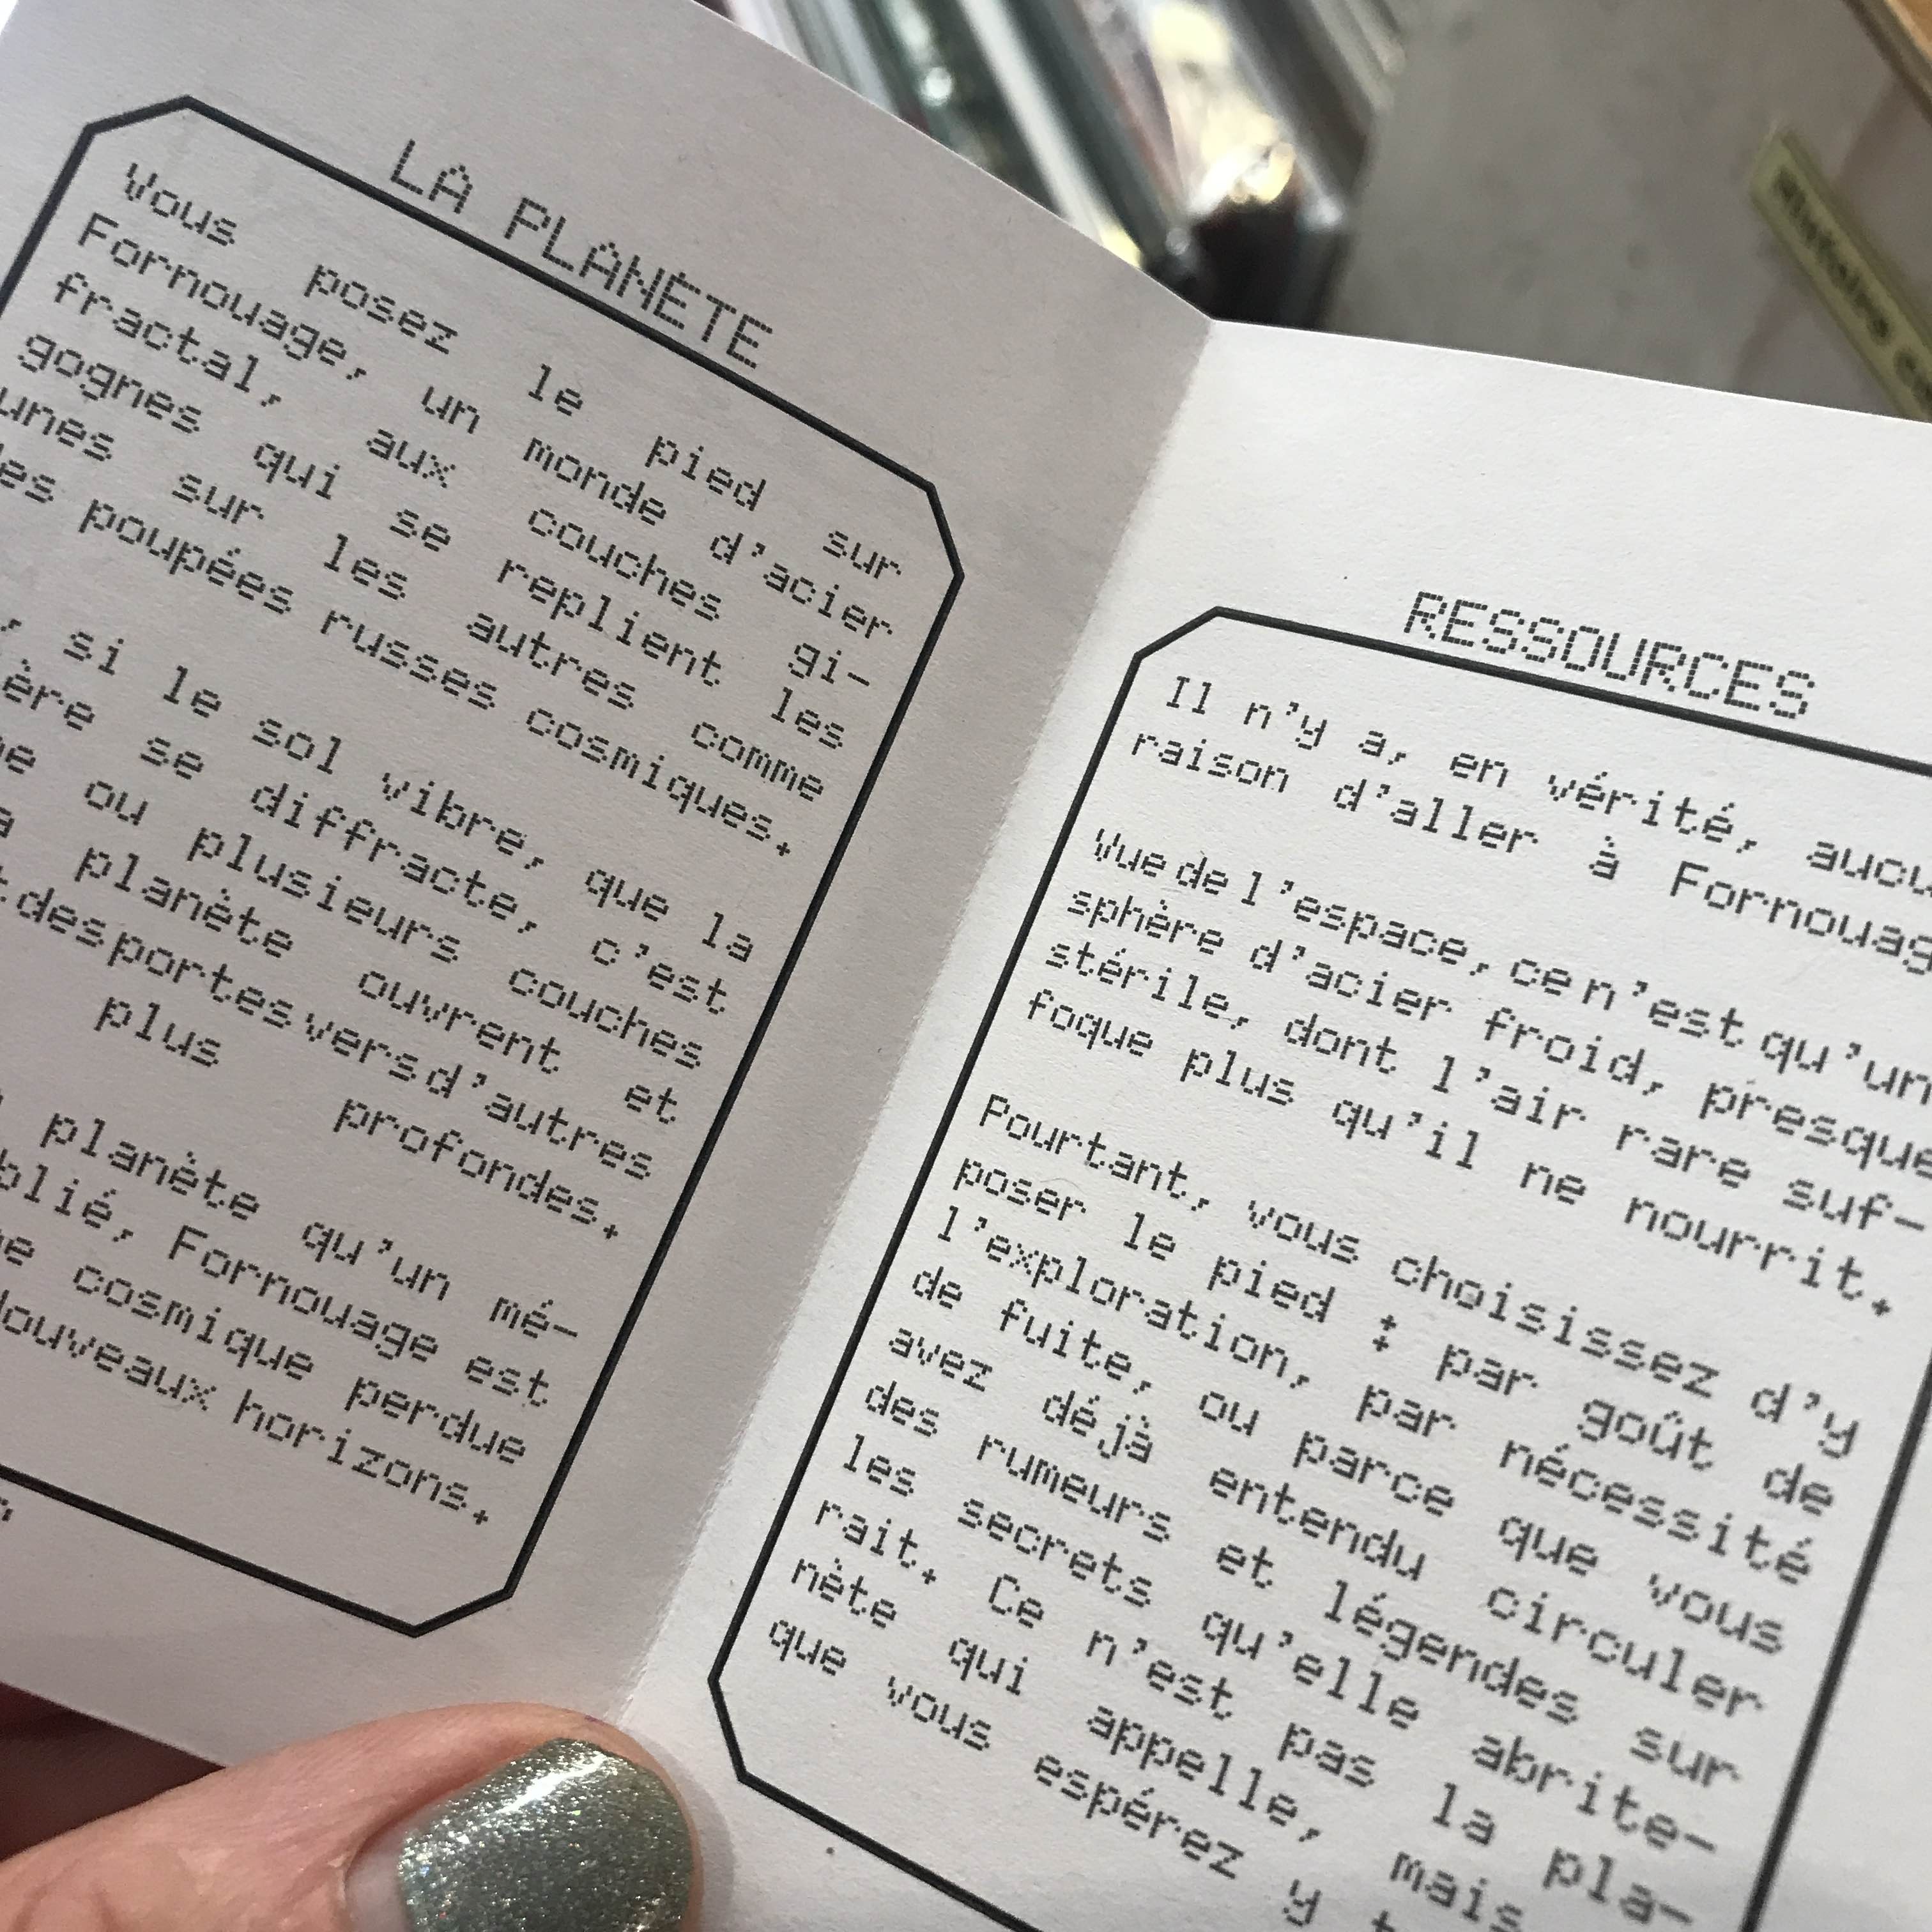 LA PLANÈTE
Vous posez le pied sur
Fornouage, un monde d'acier
fractal, aux couches gi-
gognes qui se replient les
unes sur les autres comme
des poupées russes cosmiques.
, si le sol vibre, que la
ère se diffracte, c'est
ou plusieurs couches
planète ouvrent et
t des portes vers d'autres
plus profondes.
planète qu'un mé-
blié, Fornouage est
cosmique perdue
ouveaux horizons.
RESSOURCES
Il n'y a, en vérité, aucu
raison d'aller à Fornouag
Vue de l'espace, ce n'est qu'un
sphère d'acier froid, presque
stérile, dont l'air rare suf-
foque plus qu'il ne nourrit.
Pourtant, vous choisissez d'y
poser le pied : par goût de
l'exploration, par nécessité
de fuite, ou parce que vous
avez déjà entendu circuler
des rumeurs et légendes sur
les secrets qu'elle abrite-
rait. Ce n'est pas la pla-
nète qui appelle, mais
que vous espérez y t